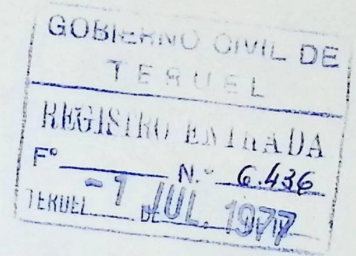 GOBIERNO CIVIL DE
TERUEL
REGISTRO ENTRADA
Fº N.º 6.436
TERUEL -1 DE JUL. 1977